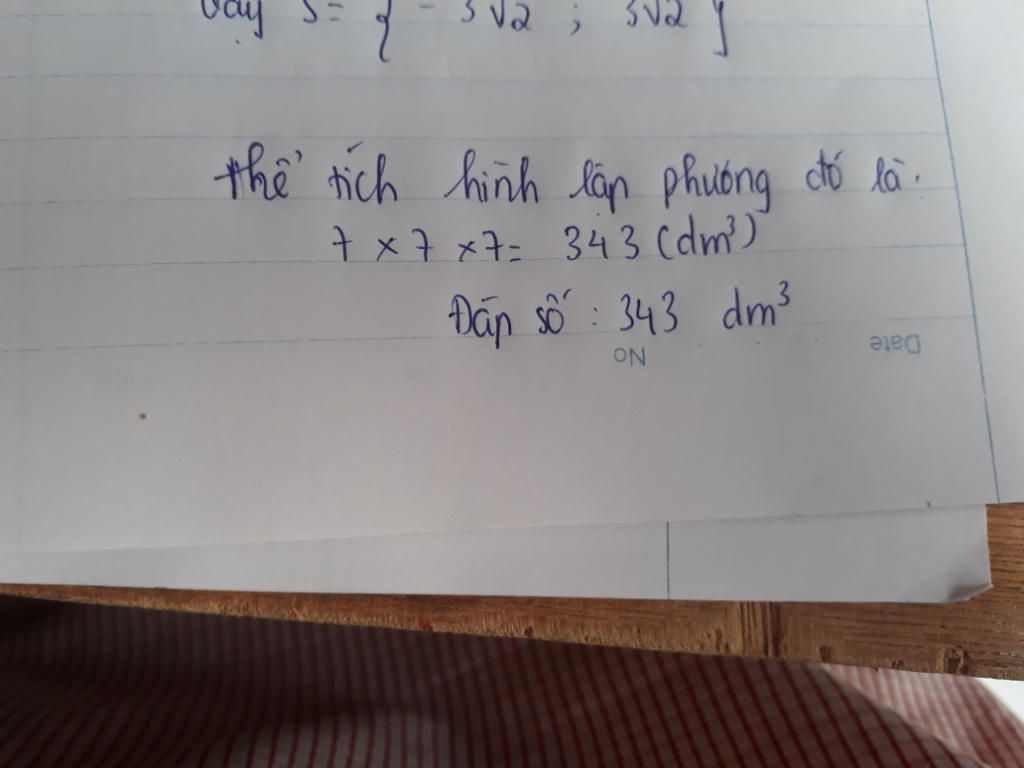 Vậy S = { - 3√2 ; 3√2 }
thể tích hình lập phương đó là.
7 x 7 x 7 = 343 (dm³)
Đáp số : 343 dm³
No
Date